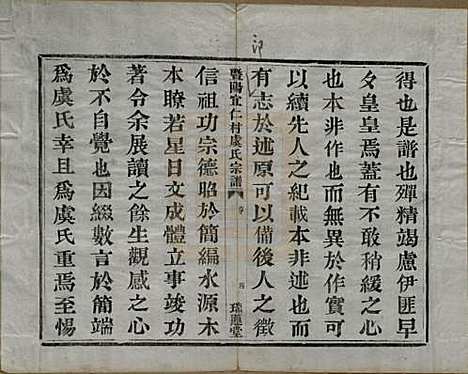 得也是譜也殫精竭慮伊匪早
夕皇皇焉蓋有不敢稍緩之心
也本非作也而無異於作實可
以續先人之紀載本非述也而
有志於述原可以備後人之徵
暨陽宜仁村虞氏宗譜 序 四 瑞應堂
信祖功宗德昭於簡編水源木
本瞭若星日文成體立事竣功
著令余展讀之餘生觀感之心
於不自覺也因綴數言於簡端
爲虞氏幸且爲虞氏重焉至惕